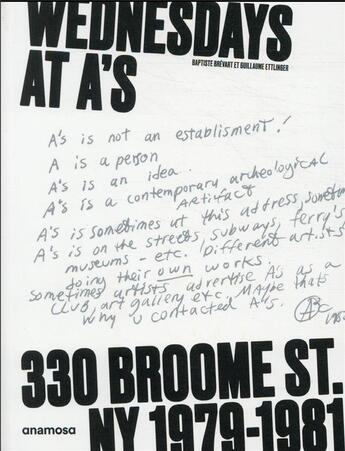 WEDNESDAYS
AT A'S
BAPTISTE BRÉVART ET GUILLAUME ETTLINGER
A's is not an establisment!
A is a person
A's is an idea.
A's is a contemporary archeological
Artifact
A's is sometimes at this address, sometim
A's is on the streets, subways, ferry's
museums - etc. Different artists
doing their own works.
sometimes artists advertise A's as a
CLUB, art gallery etc. Maybe thats
why u contacted A's.
330 BROOME ST.
NY 1979-1981
anamosa